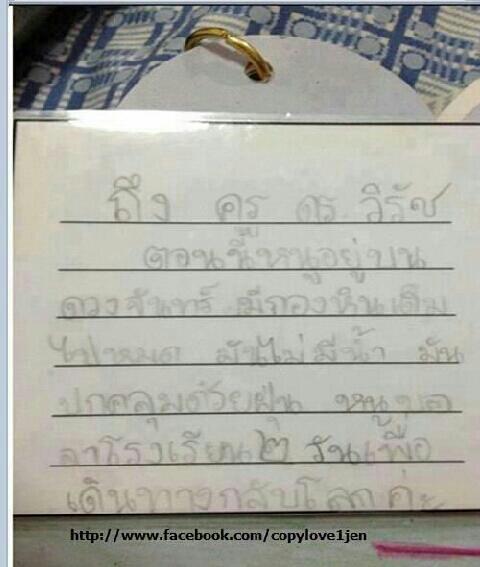 ถึง ครู ดร วิรัช
ตอนนี้หนูอยู่บน
ดวงจันทร์ มีกองหินเต็ม
ไปหมด มันไม่มีน้ำ มัน
ปกคลุมด้วยฝุ่น หนูขอ
ลาโรงเรียน ๒ วันเพื่อ
เดินทางกลับโลกค่ะ
http://www.facebook.com/copylove1jen